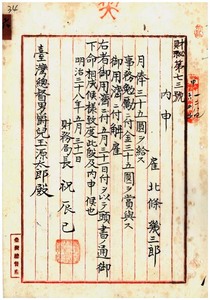 財秘第七三號
內申
雇 北條幾三郎
月俸三十五圓ヲ給ス
事務勉勵ニ付金三十五圓ヲ賞與ス
御用濟ニ付解雇
右者御用濟ニ付五月三十一日付ヲ以テ頭書ノ通御
下命相成候樣致度此段及內申候也
明治三十八年五月三十日
財務局長 祝辰巳
臺灣總督男爵兒玉源太郎殿